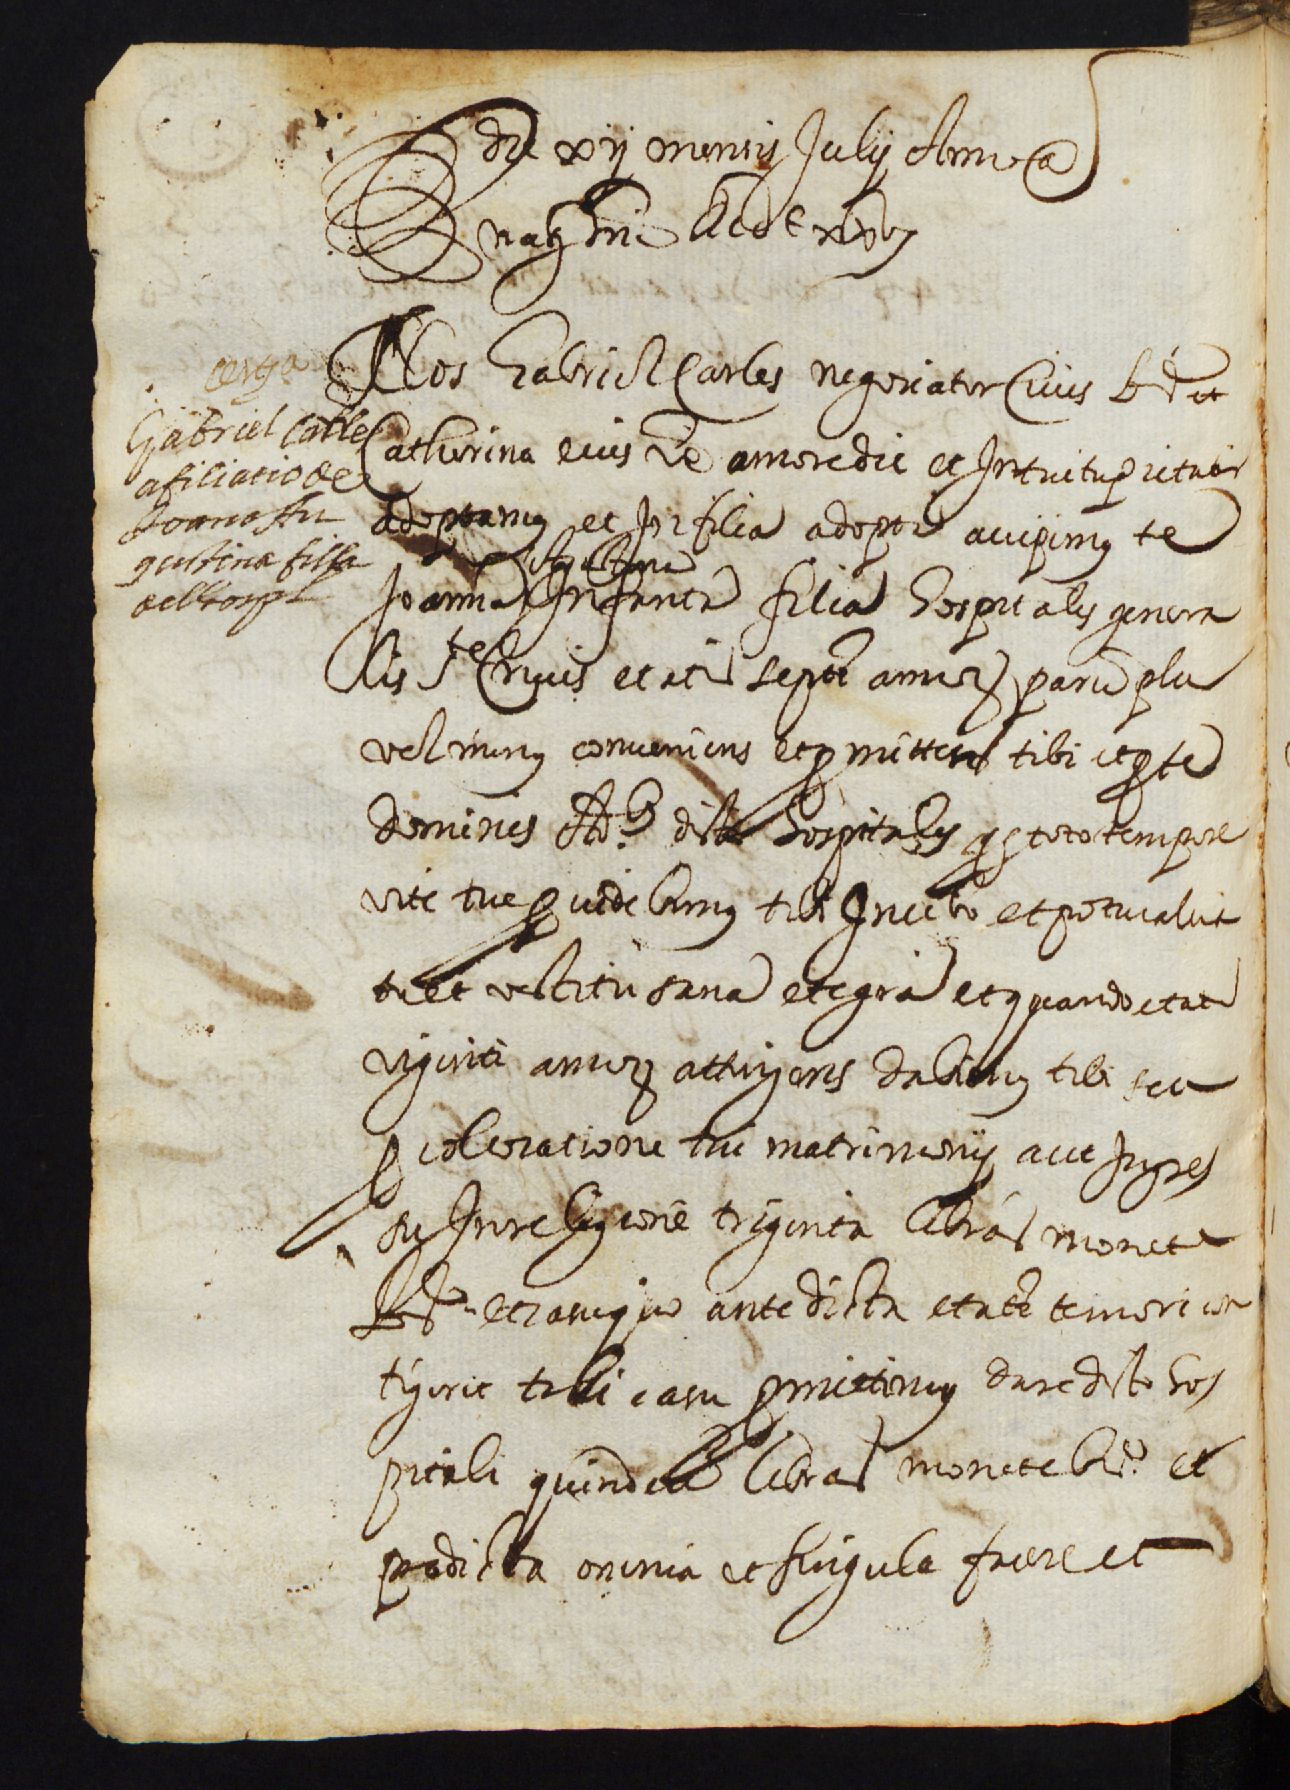 die xij mensis Julij Anno a
nat. Dni MDCxxv
Nos Gabriel Carles negociator Civis Bar. et
Catherina eius Ux. amore dei et Intuitu pietatis
adoptamus et In filia adoptiva accipimus te
Agustina
Joanna Infanta filia Hospitalis genera
lis Ste Crucis etatis septe annorum paru plus
vel minus conveniens et promittens tibi et pro te
dominis Adb. dicti Hospitalis quod toto tempore
vite tue providebimus tibi In cibo et potu calcia
tu et vestitu sana et egra et quando etate
viginti annorum attingeris dabimus tibi seu
pro collocatione tui matrimonij aut Ingres
su In religione triginta libras monete
Bar. et casuquo ante dicta etate te mori con
tigerit tali casu promittimus dare dicto Hos
pitali quindecim libras monete Bar. et
predicta omnia et singula facere et
certa
Gabriel Carles
afiliatio de
Joana Au
gustina filla
del hospl